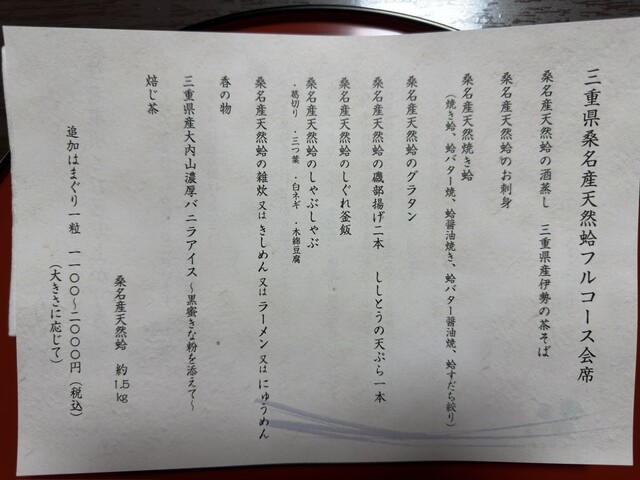 三重県桑名産天然蛤フルコース会席
桑名産天然蛤の酒蒸し　三重県産伊勢の茶そば
桑名産天然蛤のお刺身
桑名産天然焼き蛤
（焼き蛤、蛤バター焼、蛤醤油焼き、蛤バター醤油焼、蛤すだち絞り）
桑名産天然蛤のグラタン
桑名産天然蛤の磯部揚げ二本　ししとうの天ぷら一本
桑名産天然蛤のしぐれ釜飯
桑名産天然蛤のしゃぶしゃぶ
・葛切り　・三つ葉　・白ネギ　・木綿豆腐
桑名産天然蛤の雑炊 又は きしめん 又は ラーメン 又は にゅうめん
香の物
三重県産大内山濃厚バニラアイス ～黒蜜きな粉を添えて～
焙じ茶
桑名産天然蛤　約1.5kg
追加はまぐり一粒　一一〇〇～二〇〇〇円（税込）
（大きさに応じて）